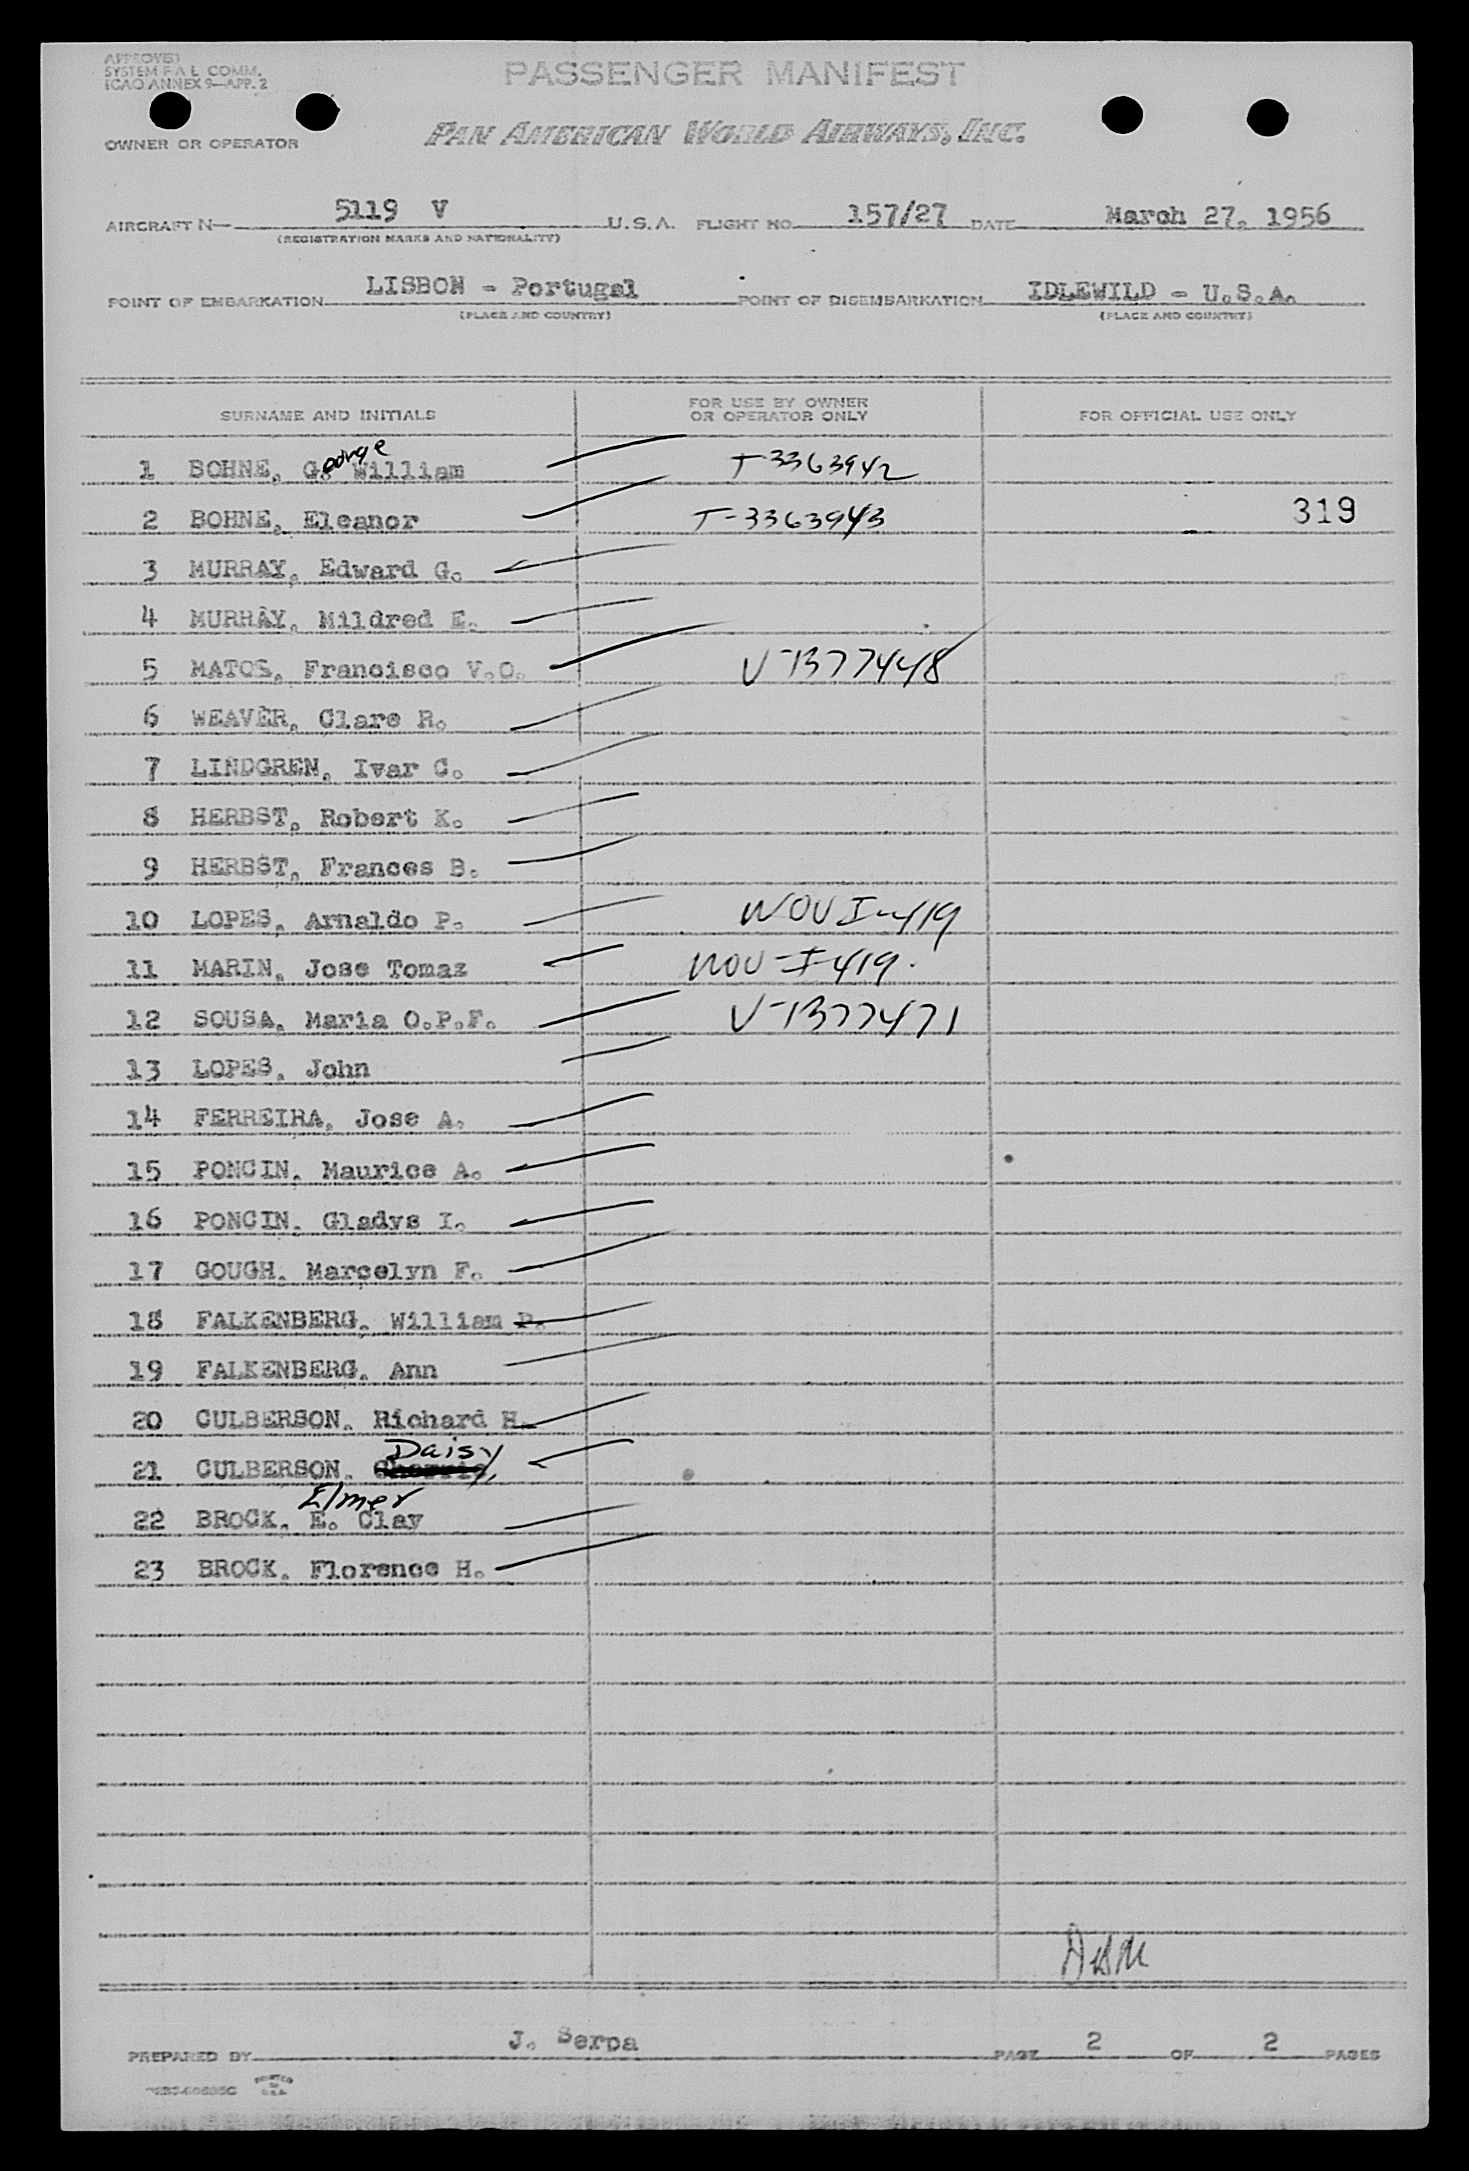 APPROVED
SYSTEM F A L COMM.
ICAO ANNEX 9—APP. 2
PASSENGER MANIFEST
OWNER OR OPERATOR
PAN AMERICAN WORLD AIRWAYS, INC.
AIRCRAFT N— 5119 V U.S.A. FLIGHT NO. 157/27 DATE March 27, 1956
(REGISTRATION MARKS AND NATIONALITY)
POINT OF EMBARKATION LISBON - Portugal POINT OF DISEMBARKATION IDLEWILD - U.S.A.
(PLACE AND COUNTRY) (PLACE AND COUNTRY)
SURNAME AND INITIALS
FOR USE BY OWNER
OR OPERATOR ONLY
FOR OFFICIAL USE ONLY
George
1 BOHNE, G. William T-3363942
2 BOHNE, Eleanor T-3363943 319
3 MURRAY, Edward G.
4 MURRAY, Mildred E.
5 MATOS, Francisco V.O. V-1377448
6 WEAVER, Clare R.
7 LINDGREN, Ivar C.
8 HERBST, Robert K.
9 HERBST, Frances B.
10 LOPES, Arnaldo P. NOV I-419
11 MARIN, Jose Tomaz NOV-I-419.
12 SOUSA, Maria O.P.F. V-1377471
13 LOPES, John
14 FERREIRA, Jose A.
15 PONCIN, Maurice A.
16 PONCIN, Gladys I.
17 GOUGH, Marcelyn F.
18 FALKENBERG, William P.
19 FALKENBERG, Ann
20 CULBERSON, Richard H.
Daisy
21 CULBERSON,
Elmer
22 BROCK, E. Clay
23 BROCK, Florence H.
PREPARED BY J. Serpa PAGE 2 OF 2 PAGES
PRINTED
IN
U.S.A.